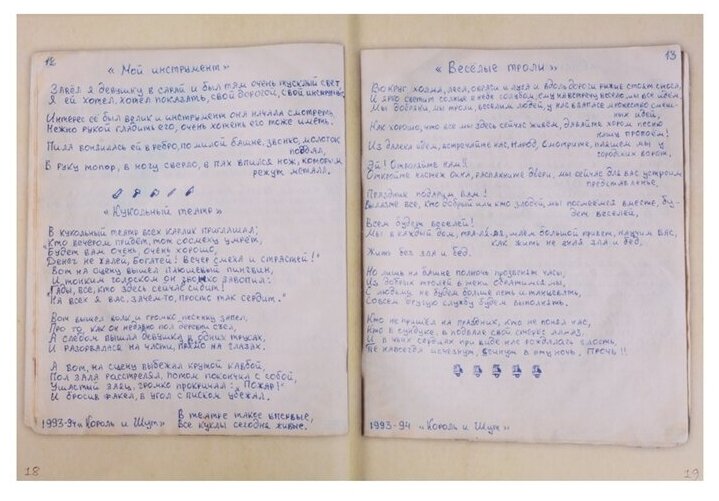 12
« Мой инструмент »
Завёл я девушку в сарай и был там очень тусклый свет,
Я ей хотел, хотел показать, свой дорогой, свой инструмент.
Интерес её был велик и инструмент она начала смотреть,
Нежно рукой гладить его, очень хотеть его тоже иметь.
Пила вонзилась ей в ребро, по милой башне, звонко, молоток
В руку топор, в ногу сверло, в пах впился нож, которым
режут металл.
« Кукольный театр »
В кукольный театр всех карлик приглашал:
"Кто вечером придёт, тот со смеху умрёт,
Будет вам очень, очень хорошо,
Денег не жалей, богатей! Вечер смеха и страстей!"
Вот на сцену вышел плюшевый пингвин,
И тонким голоском он звонко завопил:
"Гады, все, кто здесь сейчас сидит!
На всех я вас, зачем-то, просто так сердит."
Вот вышел волк и громко песнику запел,
Про то, как он недавно пол деревни съел,
А следом вышла девушка в одних трусах,
И разорвалась на части, прямо на глазах.
А вот, на сцену выбежал крутой ковбой,
Пол зала расстрелял, потом покончил с собой,
Ушастый заяц, громко прокричал: "Пожар!"
И бросив факел, в угол с писком убежал.
В театре такое впервые,
1993-94 «Король и Шут» все куклы сегодня живые.
18
13
« Весёлые троли »
Вокруг холма, леса, овраги и луга и вдоль дороги рыжие стоят стога,
И ярко светит солнце в небе голубом, ему навстречу весело мы все идём.
Мы добряки, мы троли, веселим людей, у нас в запасе множество смеш-
ных идей,
Как хорошо, что все мы здесь сейчас живём, давайте хором песню
нашу пропоём!
Из далека идём, встречайте нас, народ, смотрите, пляшем мы у
городских ворот,
Эй! Открывайте нам!
Откройте настеж окна, распахните двери, мы сейчас для вас устроим
представленье,
Праздник подарим вам!
Выходите все, кто добрый или кто злодей, мы посмеёмся вместе, бу-
дет веселей,
Всем будет веселей!
Мы в каждый дом, тра-ля-ля, шлём большой привет, научим вас,
как жить не зная зла и бед.
Жить без зла и бед.
Но лишь на башне полночь прозвонят часы,
Из добрых тролей в меня обратимся мы,
С людьми не будем больше петь и танцевать,
Совсем другую службу будем выполнять.
Кто не пришёл на праздник, кто не понял нас,
Кто в сундуке, в подвале свой стерёг алмаз,
И в чьих сердцах при виде нас рождалась злость,
Те навсегда исчезнут, сгинут в эту ночь. Прочь!!
1993-94 «Король и Шут»
19